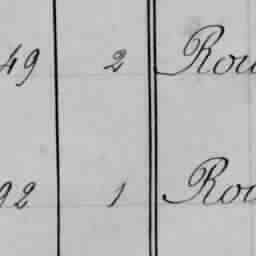 49 2 Rou
92 1 Rou